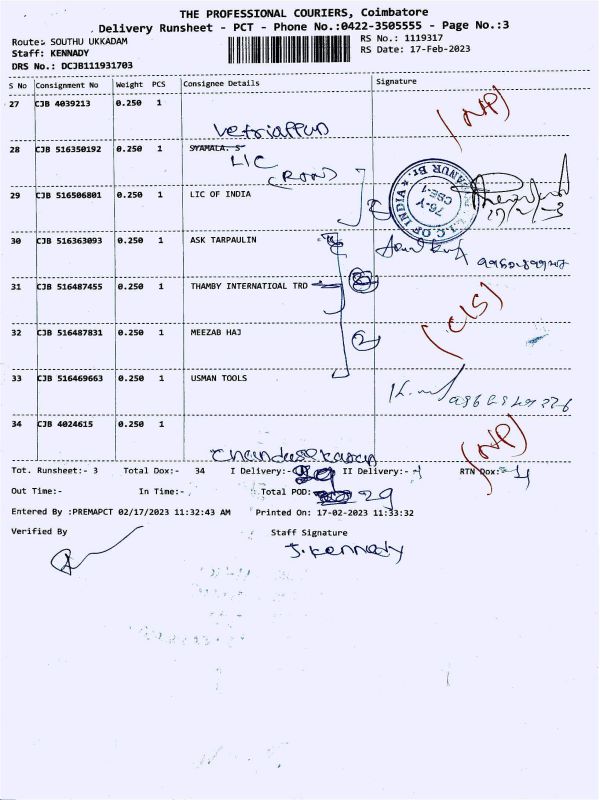 THE PROFESSIONAL COURIERS, Coimbatore
Delivery Runsheet - PCT - Phone No.:0422-3505555 - Page No.:3
Route: SOUTHU UKKADAM
RS No.: 1119317
Staff: KENNADY
RS Date: 17-Feb-2023
DRS No.: DCJB111931703
S No Consignment No Weight PCS Consignee Details Signature
27 CJB 4039213 0.250 1 (NP)
Vetriappan
28 CJB 516350192 0.250 1 SYAMALA. S
LIC
29 CJB 516506801 0.250 1 LIC OF INDIA
L.I.C.OF INDIA
76-Y
CBE-1
30 CJB 516363093 0.250 1 ASK TARPAULIN
31 CJB 516487455 0.250 1 THAMBY INTERNATIOAL TRD
32 CJB 516487831 0.250 1 MEEZAB HAJ (CLS)
2
33 CJB 516469663 0.250 1 USMAN TOOLS
34 CJB 4024615 0.250 1 (NP)
Chandrasekaran
Tot. Runsheet:- 3 Total Dox:- 34 I Delivery:- II Delivery:- RTN Dox:-
Out Time:- In Time:- Total POD: 29
Entered By :PREMAPCT 02/17/2023 11:32:43 AM Printed On: 17-02-2023 11:33:32
Verified By Staff Signature
J. Kennady